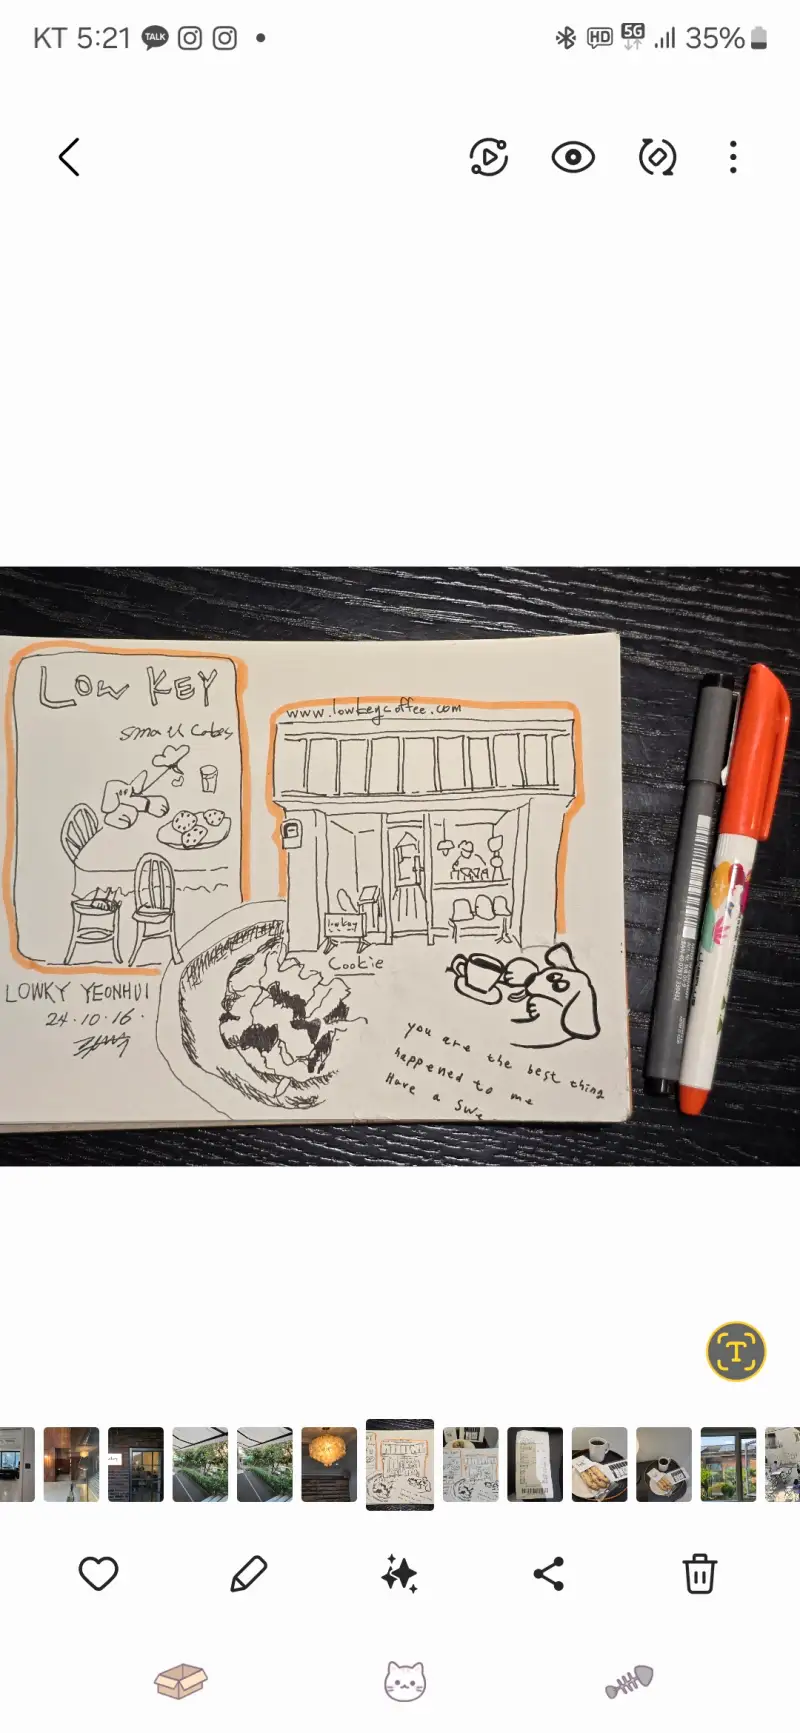 KT 5:21
TALK
HD
5G
35%
LOW KEY
small Cakes
www.lowkeycoffee.com
lowkey
Cookie
LOWKY YEONHUI
24.10.16.
you are the best thing
happened to me
Have a
T